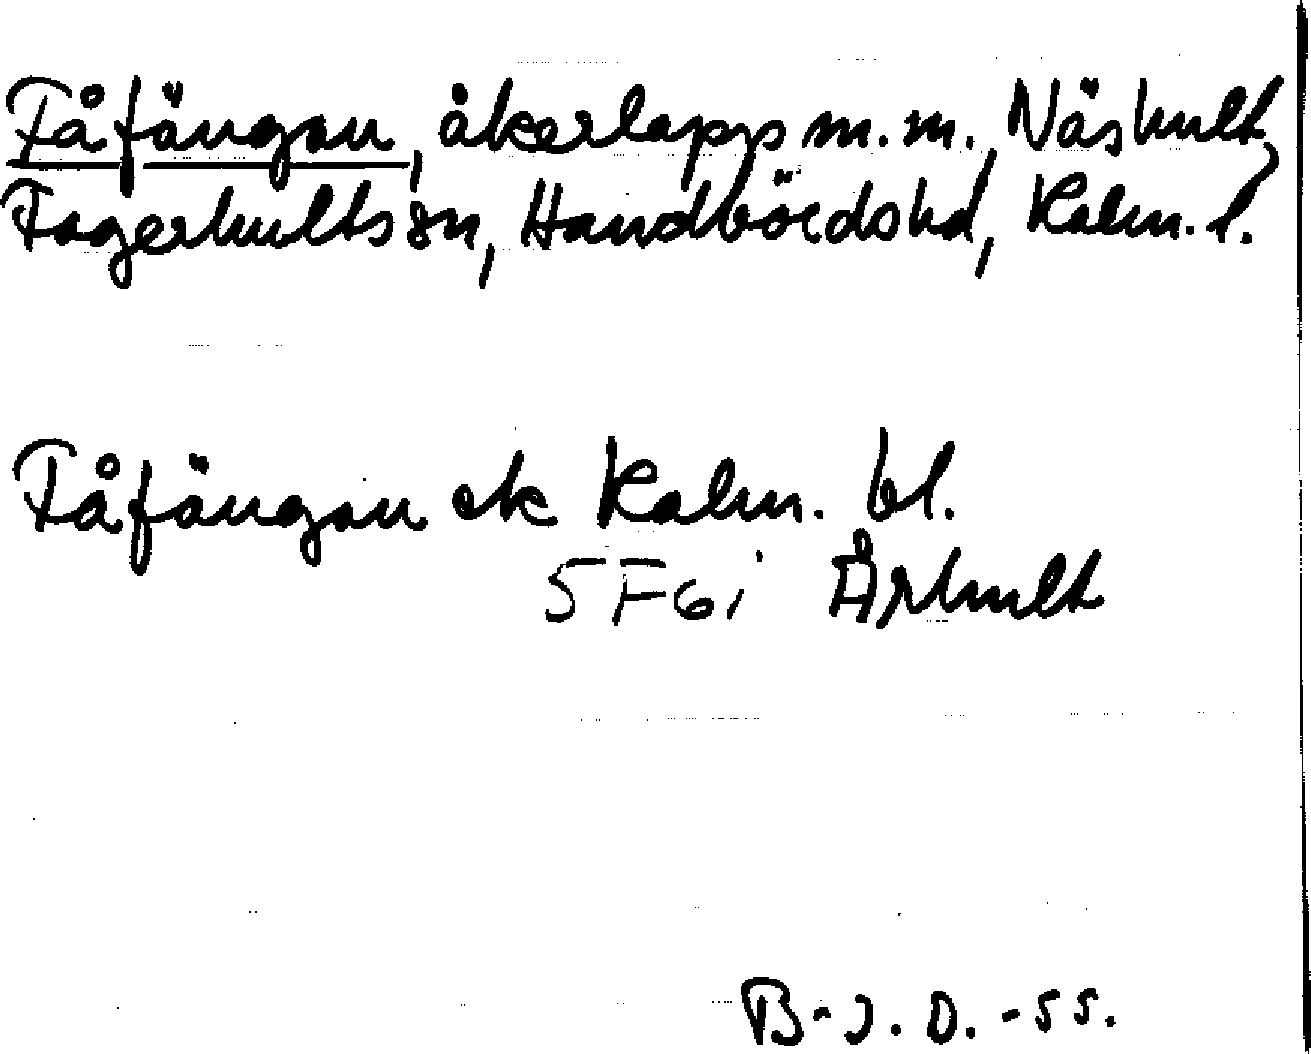 Fåfängan, åkerlapp m.m., Näshult,
Fagerhults sn, Handbörds hd, Kalm. l.
Fåfängan ek Kalm. bl.
5F6i Århult
B-J.O.-55.